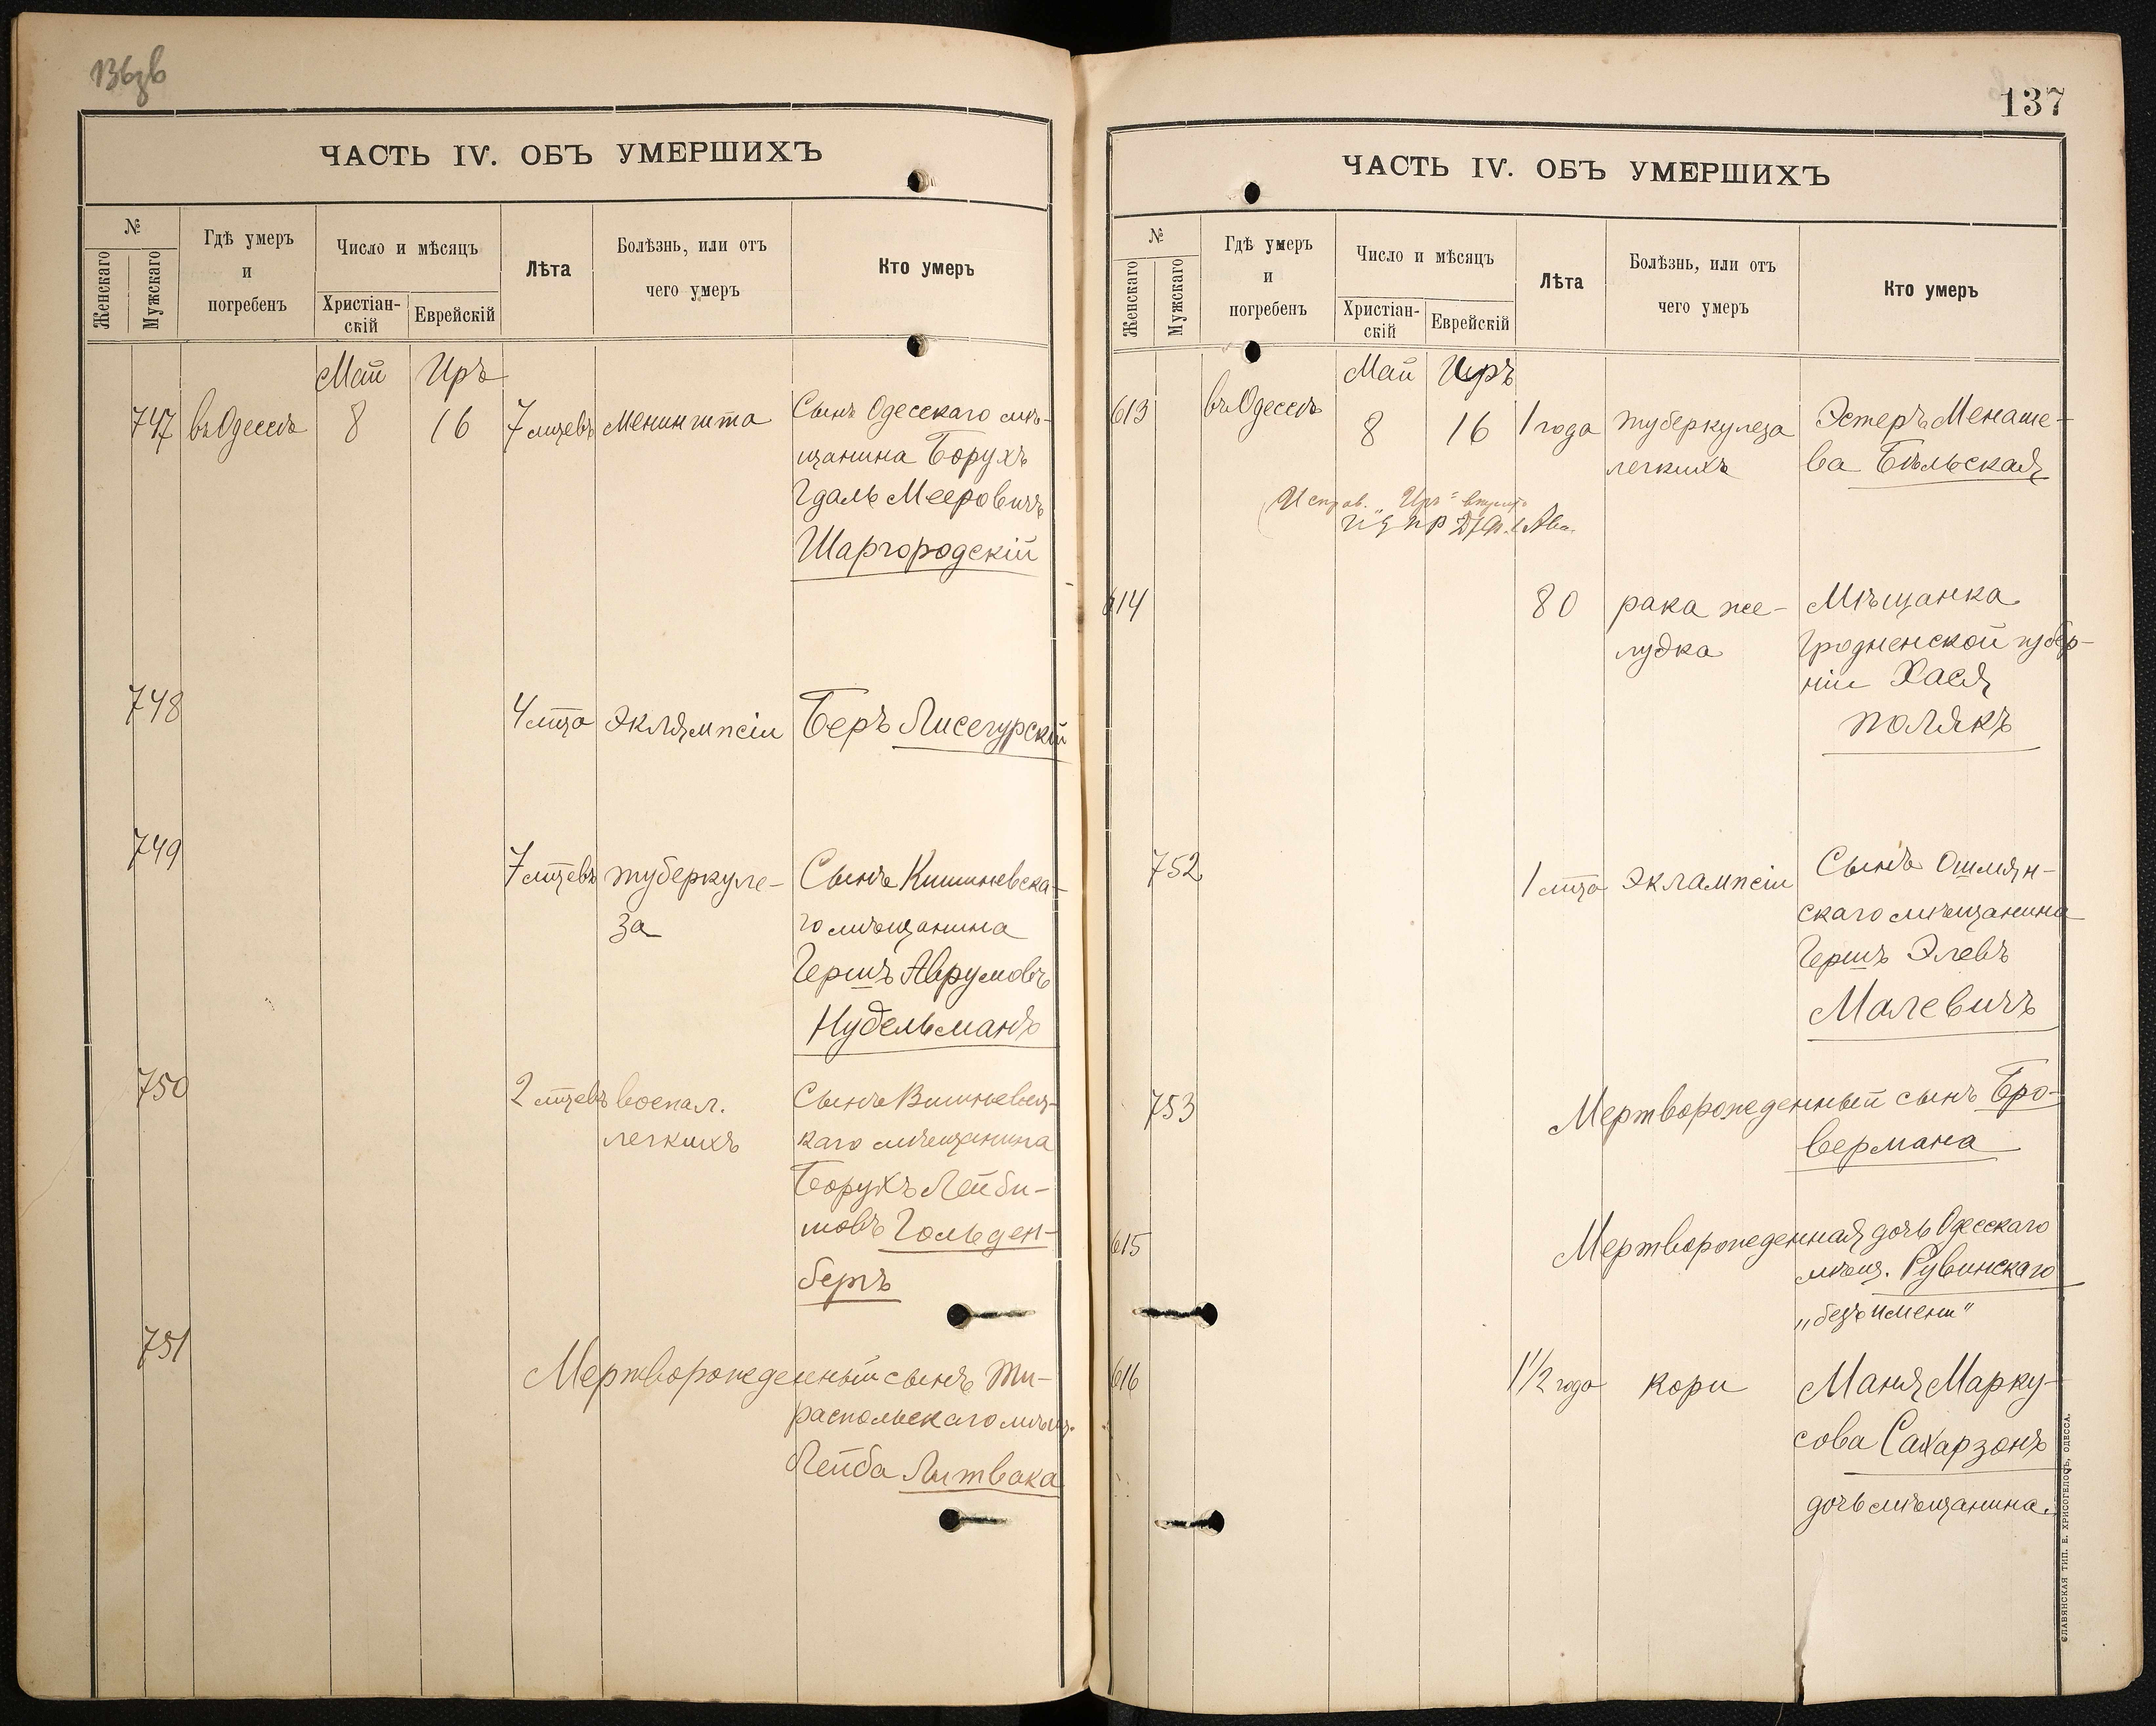 136зв
ЧАСТЬ IV. ОБЪ УМЕРШИХЪ
№
Женскаго
Мужскаго
Гдѣ умеръ
и
погребенъ
Число и мѣсяцъ
Христіан-
скій
Еврейскій
Лѣта
Болѣзнь, или отъ
чего умеръ
Кто умеръ
Май Иръ
747 въ Одессѣ 8 16 7 мцевъ менингита Сынъ Одесскаго мѣ-
щанина Борухъ
Гдаль Мееровичъ
Шаргородскій
748 4 мца эклямпсіи Беръ Лисегурскій
749 7 мцевъ туберкуле- Сынъ Кишиневска-
за го мѣщанина
Гершъ Аврумовъ
Нудельманъ
750 2 мцевъ воспал. Сынъ
легкихъ каго мѣщанина
Борухъ Лейби-
шовъ Гольден-
бергъ
751 Мертворожденный сынъ Ти-
распольскаго мѣщ.
Лейба Литвака
137
ЧАСТЬ IV. ОБЪ УМЕРШИХЪ
№
Женскаго
Мужскаго
Гдѣ умеръ
и
погребенъ
Число и мѣсяцъ
Христіан-
скій
Еврейскій
Лѣта
Болѣзнь, или отъ
чего умеръ
Кто умеръ
Май Иръ
613 въ Одессѣ 8 16 1 года туберкулеза Эстеръ Менаше-
легкихъ ва Бѣльская
Исправ. „Иръ"
614 80 рака же- Мѣщанка
лудка Гродненской губер-
ніи Хася
Полякъ
752 1 мца эклампсіи Сынъ Ошмян-
скаго мѣщанина
Гершъ Элевъ
Малевичъ
753 Мертворожденный сынъ Бро-
вермана
615 Мертворожденная дочь Одесскаго
мѣщ. Рувинскаго
„безъ имени"
616 1 1/2 года кори Маня Марку-
сова Сахарзонъ
дочь мѣщанина.
СЛАВЯНСКАЯ ТИП. Е. ХРИСОГЕЛОСЪ, ОДЕССА.